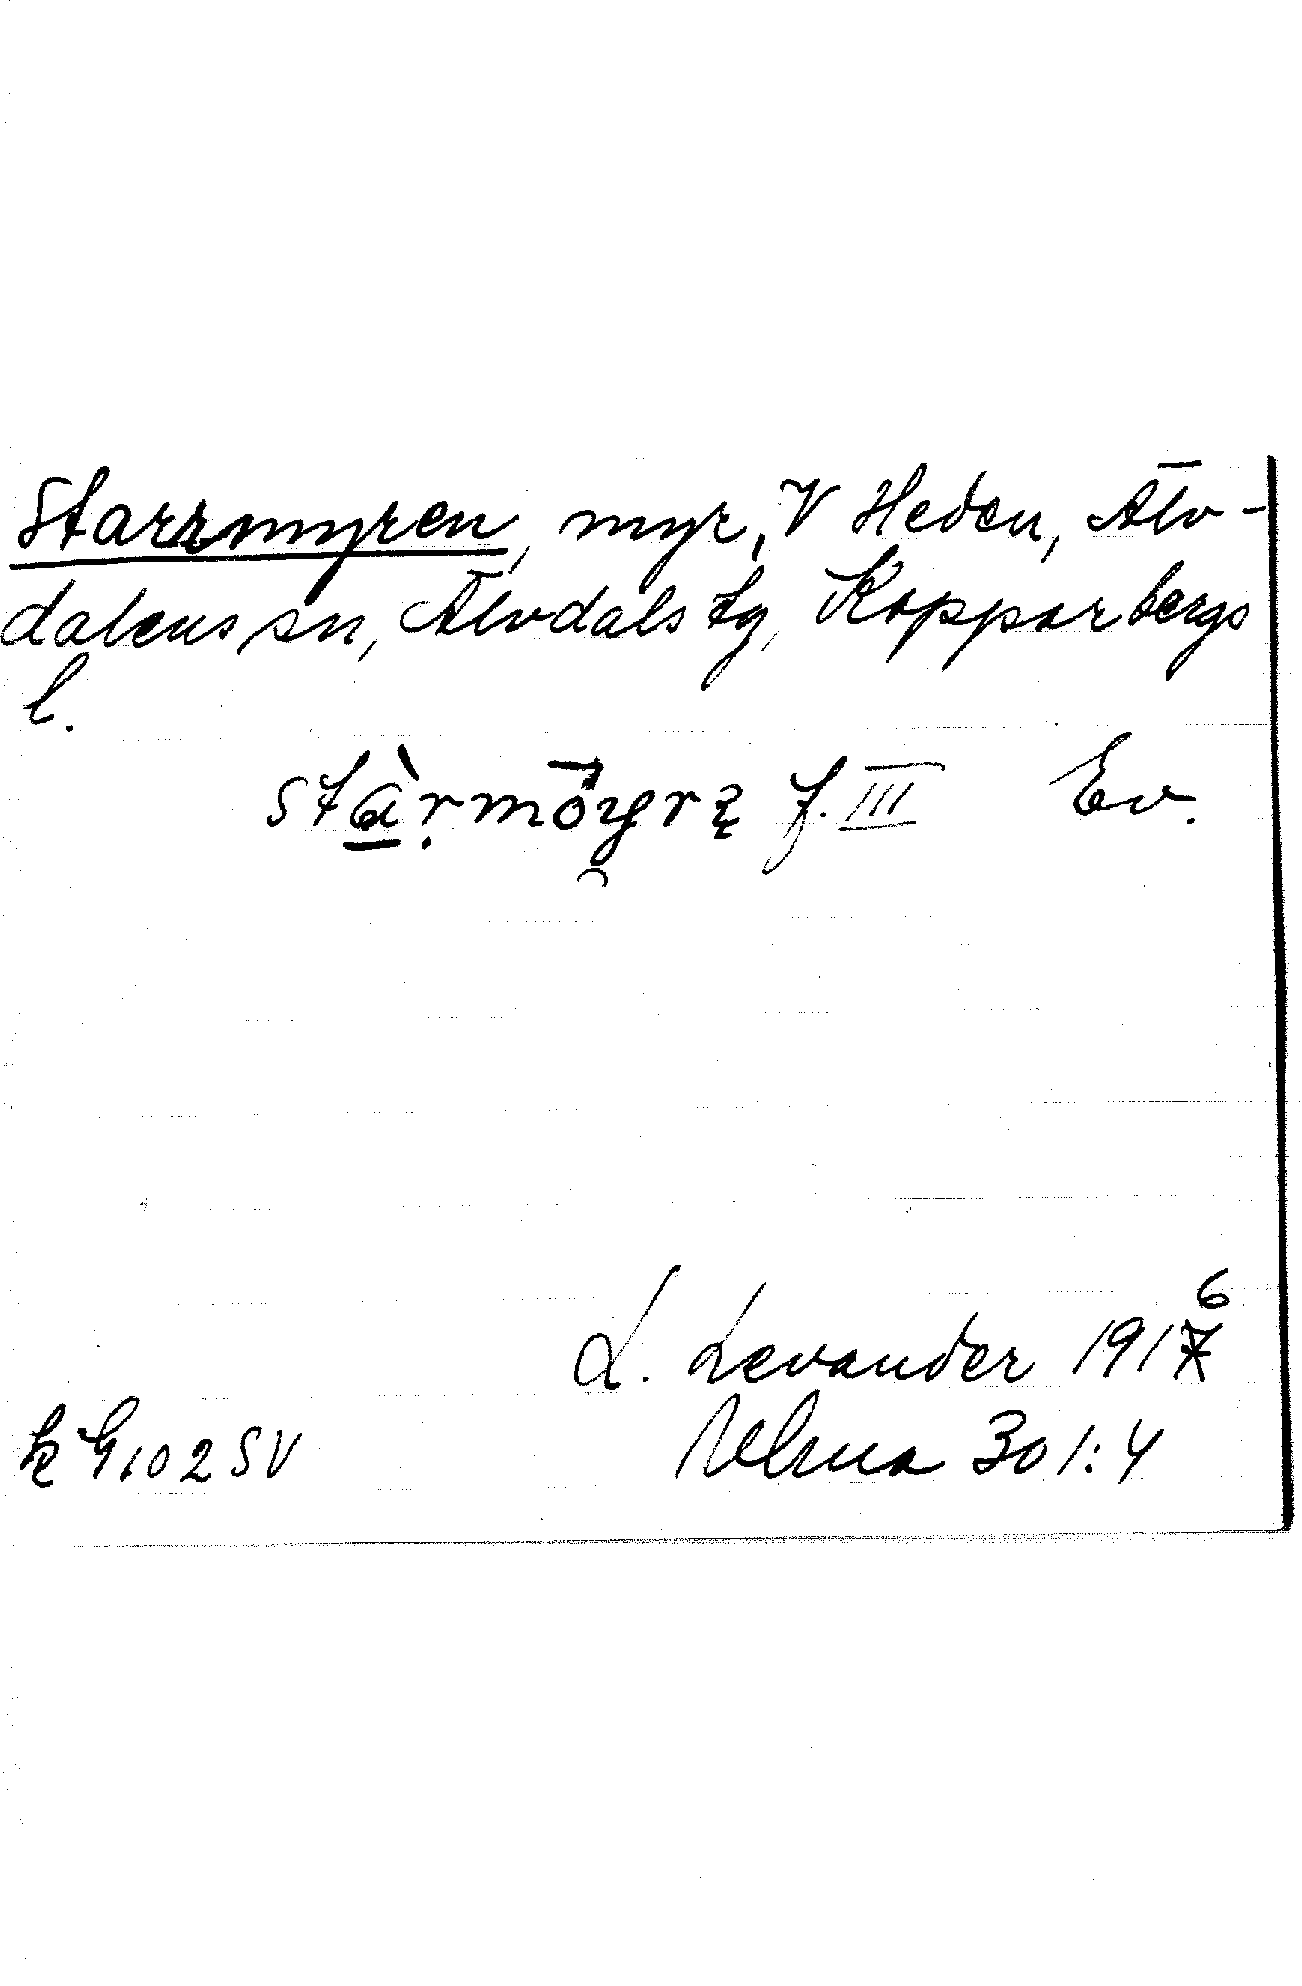 Starrmyren, myr, V Heden, Älv-
dalens sn, Älvdals tg, Kopparbergs
l.
stàrmȫyrę f. III Ev.
L. Levander 1916
kG102SV Ulma 301:4